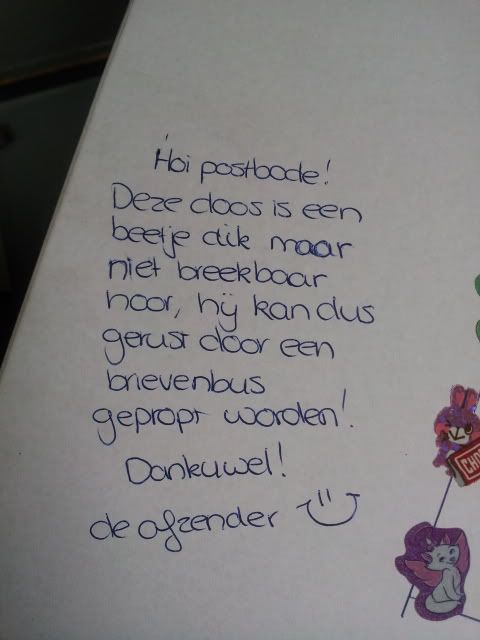 Hoi postbode!
Deze doos is een
beetje dik maar
niet breekbaar
hoor, hij kan dus
gerust door een
brievenbus
gepropt worden!
Dankuwel!
de afzender
CHO